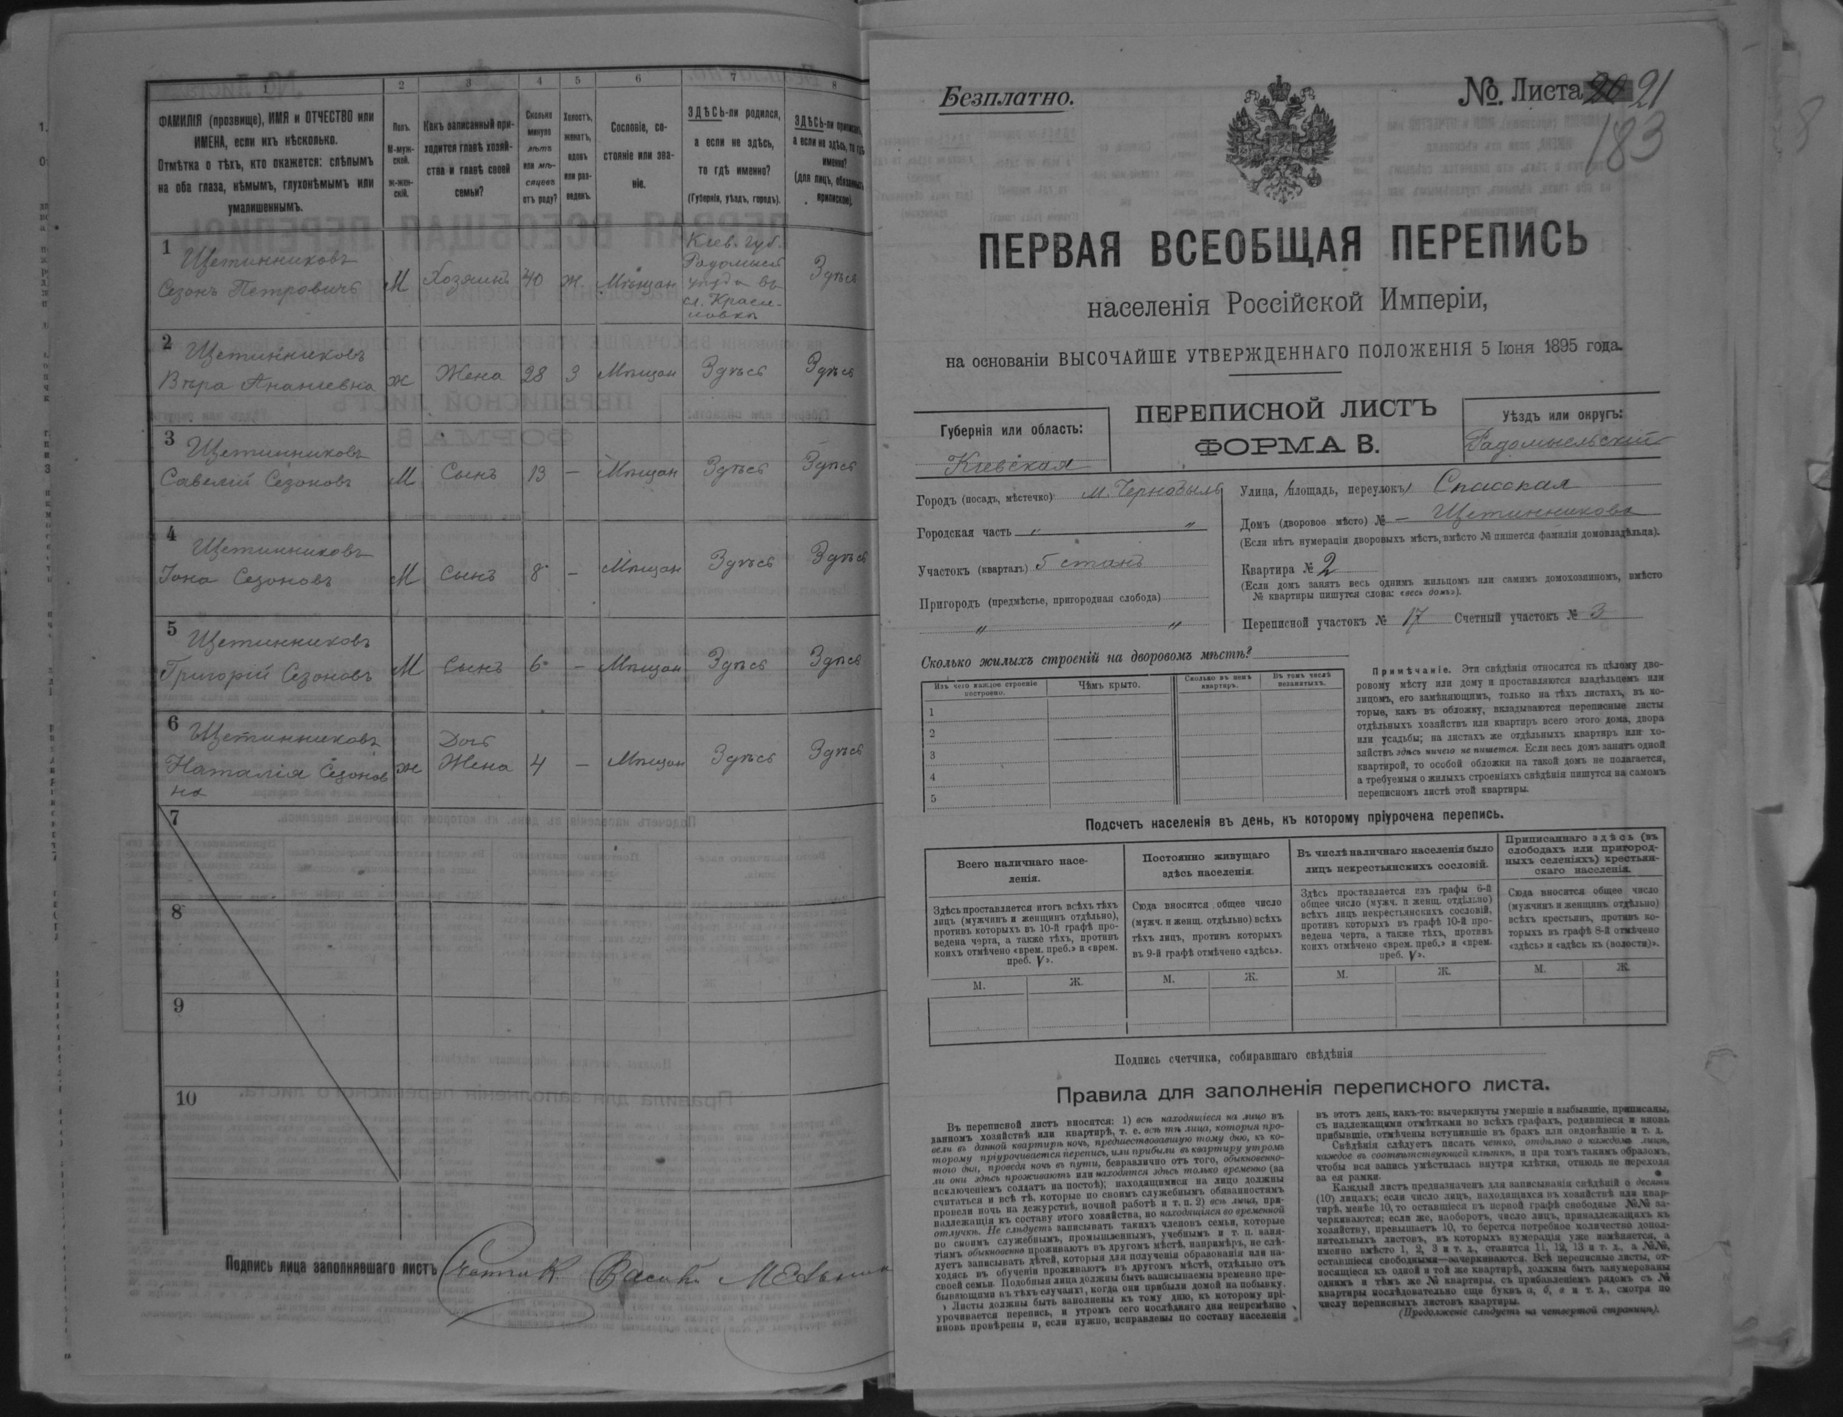 1
2
3
4
5
6
7
8
ФАМИЛІЯ (прозвище), ИМЯ и ОТЧЕСТВО или
ИМЕНА, если ихъ нѣсколько.
Отмѣтка о тѣхъ, кто окажется: слѣпымъ
на оба глаза, нѣмымъ, глухонѣмымъ или
умалишеннымъ.
Полъ.
М-муж-
ской.
Ж-жен-
скій.
Какъ записанный при-
ходится главѣ хозяй-
ства и главѣ своей
семьи?
Сколько
минуло
лѣтъ
или мѣ-
сяцевъ
отъ роду?
Холостъ,
женатъ,
вдовъ
или раз-
веденъ.
Сословіе, со-
стояніе или зва-
ніе.
ЗДѢСЬ-ли родился,
а если не здѣсь,
то гдѣ именно?
(Губернія, уѣздъ, городъ).
ЗДѢСЬ-ли приписанъ,
а если не здѣсь, то гдѣ
именно?
(для лицъ, обязанныхъ
припискою).
1
Щетинниковъ
Сезонъ Петровичъ
М
Хозяинъ
40
Ж.
Мѣщан
Кіев. губ.
Радомысл
уѣзда въ
сл. Красил-
ловкѣ
Здѣсь
2
Щетинниковъ
Вѣра Ананіевна
ж
Жена
28
З
Мѣщан
Здѣсь
Здѣсь
3
Щетинниковъ
Савелій Сезоновъ
М
Сынъ
13
—
Мѣщан
Здѣсь
Здѣсь
4
Щетинниковъ
Іона Сезоновъ
М
Сынъ
8
—
Мѣщан
Здѣсь
Здѣсь
5
Щетинниковъ
Григорій Сезоновъ
М
Сынъ
6
—
Мѣщан
Здѣсь
Здѣсь
6
Щетинниковъ
Наталія Сезонов
на
ж
Дочь
Жена
4
—
Мѣщан
Здѣсь
Здѣсь
7
8
9
10
Подпись лица заполнявшаго листъ
Безплатно.
№ Листа 20 21
183
ПЕРВАЯ ВСЕОБЩАЯ ПЕРЕПИСЬ
населенія Россійской Имперіи,
на основаніи ВЫСОЧАЙШЕ УТВЕРЖДЕННАГО ПОЛОЖЕНІЯ 5 Іюня 1895 года.
Губернія или область:
Кіевская
ПЕРЕПИСНОЙ ЛИСТЪ
ФОРМА В.
Уѣздъ или округъ:
Радомысльскій
Городъ (посадъ, мѣстечко): м. Чернобыль
Городская часть „ „
Участокъ (кварталъ) 5 станъ
Пригородъ (предмѣстье, пригородная слобода)
„ „
Улица, (площадь, переулокъ) Спасская
Домъ (дворовое мѣсто) № — Щетинникова
(Если нѣтъ нумераціи дворовыхъ мѣстъ, вмѣсто № пишется фамилія домовладѣльца).
Квартира № 2
(Если домъ занятъ весь однимъ жильцомъ или самимъ домохозяиномъ, вмѣсто
№ квартиры пишутся слова: «весь домъ»).
Переписной участокъ № 17 Счетный участокъ № 3
Сколько жилыхъ строеній на дворовомъ мѣстѣ?
Изъ чего каждое строеніе
построено.
Чѣмъ крыто.
Сколько въ немъ
квартиръ.
Въ томъ числѣ
незанятыхъ.
1
2
3
4
5
Примѣчаніе. Эти свѣдѣнія относятся къ цѣлому дво-
ровому мѣсту или дому и проставляются владѣльцемъ или
лицомъ, его замѣняющимъ, только на тѣхъ листахъ, въ ко-
торые, какъ въ обложку, вкладываются переписные листы
отдѣльныхъ хозяйствъ или квартиръ всего этого дома, двора
или усадьбы; на листахъ же отдѣльныхъ квартиръ или хо-
зяйствъ здѣсь ничего не пишется. Если весь домъ занятъ одной
квартирой, то особой обложки на такой домъ не полагается,
а требуемыя о жилыхъ строеніяхъ свѣдѣнія пишутся на самомъ
переписномъ листѣ этой квартиры.
Подсчетъ населенія въ день, къ которому пріурочена перепись.
Всего наличнаго насе-
ленія.
Здѣсь проставляется итогъ всѣхъ тѣхъ
лицъ (мужчинъ и женщинъ отдѣльно),
противъ которыхъ въ 10-й графѣ про-
ведена черта, а также тѣхъ, противъ
коихъ отмѣчено «врем. преб.» и «врем.
преб. V».
М.
Ж.
Постоянно живущаго
здѣсь населенія.
Сюда вносится общее число
(мужч. и женщ. отдѣльно) всѣхъ
тѣхъ лицъ, противъ которыхъ
въ 9-й графѣ отмѣчено «здѣсь».
М.
Ж.
Въ числѣ наличнаго населенія было
лицъ некрестьянскихъ сословій.
Здѣсь проставляется изъ графы 6-й
общее число (мужч. и женщ. отдѣльно)
всѣхъ лицъ некрестьянскихъ сословій,
противъ которыхъ въ графѣ 10-й про-
ведена черта, а также тѣхъ, противъ
коихъ отмѣчено «врем. преб.» и «врем.
преб. V».
М.
Ж.
Приписаннаго здѣсь (въ
слободахъ или пригород-
ныхъ селеніяхъ) крестьян-
скаго населенія.
Сюда вносится общее число
(мужчинъ и женщинъ отдѣльно)
всѣхъ крестьянъ, противъ ко-
торыхъ въ графѣ 8-й отмѣчено
«здѣсь» и «здѣсь къ (волости)».
М.
Ж.
Подпись счетчика, собиравшаго свѣдѣнія
Правила для заполненія переписного листа.
Въ переписной листъ вносятся: 1) всѣ находящіеся на лицо въ
данномъ хозяйствѣ или квартирѣ, т. е. всѣ тѣ лица, которыя про-
вели въ данной квартирѣ ночь, предшествовавшую тому дню, къ ко-
торому пріурочивается перепись, или прибыли въ квартиру утромъ
того дня, проведя ночь въ пути, безразлично отъ того, обыкновенно-
ли они здѣсь проживаютъ или находятся здѣсь только временно (за
исключеніемъ солдатъ на постоѣ); находящимися на лицо должны
считаться и всѣ тѣ, которые по своимъ служебнымъ обязанностямъ
провели ночь на дежурствѣ, ночной работѣ и т. п. 2) всѣ лица, при-
надлежащія къ составу этого хозяйства, но находящіяся во временной
отлучкѣ. Не слѣдуетъ записывать такихъ членовъ семьи, которые
по своимъ служебнымъ, промышленнымъ, учебнымъ и т. п. заня-
тіямъ обыкновенно проживаютъ въ другомъ мѣстѣ, напримѣръ, не слѣ-
дуетъ записывать дѣтей, которыя для полученія образованія или на-
ходясь въ обученіи проживаютъ въ другомъ мѣстѣ, отдѣльно отъ
своей семьи. Подобныя лица должны быть записываемы временно пре-
бывающими въ тѣхъ случаяхъ, когда они прибыли домой на побывку.
Листы должны быть заполнены къ тому дню, къ которому прі-
урочивается перепись, и утромъ сего послѣдняго дня непремѣнно
вновь провѣрены и, если нужно, исправлены по составу населенія
въ этотъ день, какъ-то: вычеркнуты умершіе и выбывшіе, приписаны,
съ надлежащими отмѣтками во всѣхъ графахъ, родившіеся и вновь
прибывшіе, отмѣчены вступившіе въ бракъ или овдовѣвшіе и т. д.
Свѣдѣнія слѣдуетъ писать четко, отдѣльно о каждомъ лицѣ,
каждое въ соотвѣтствующей клѣткѣ, и при томъ такимъ образомъ,
чтобы вся запись умѣстилась внутри клѣтки, отнюдь не переходя
за ея рамки.
Каждый листъ предназначенъ для записыванія свѣдѣній о десяти
(10) лицахъ; если число лицъ, находящихся въ хозяйствѣ или квар-
тирѣ, менѣе 10, то оставшіеся въ первой графѣ свободные №№ за-
черкиваются; если же, наоборотъ, число лицъ, принадлежащихъ къ
хозяйству, превышаетъ 10, то берется потребное количество допол-
нительныхъ листовъ, въ которыхъ нумерація уже измѣняется, а
именно вмѣсто 1, 2, 3 и т. д., ставится 11, 12, 13 и т. д., а №№,
оставшіеся свободными—зачеркиваются. Всѣ переписные листы, от-
носящіеся къ одной и той же квартирѣ, должны быть занумерованы
однимъ и тѣмъ же № квартиры, съ прибавленіемъ рядомъ съ №
квартиры послѣдовательно еще буквъ а, б, в и т. д., смотря по
числу переписныхъ листовъ квартиры.
(Продолженіе слѣдуетъ на четвертой страницѣ).